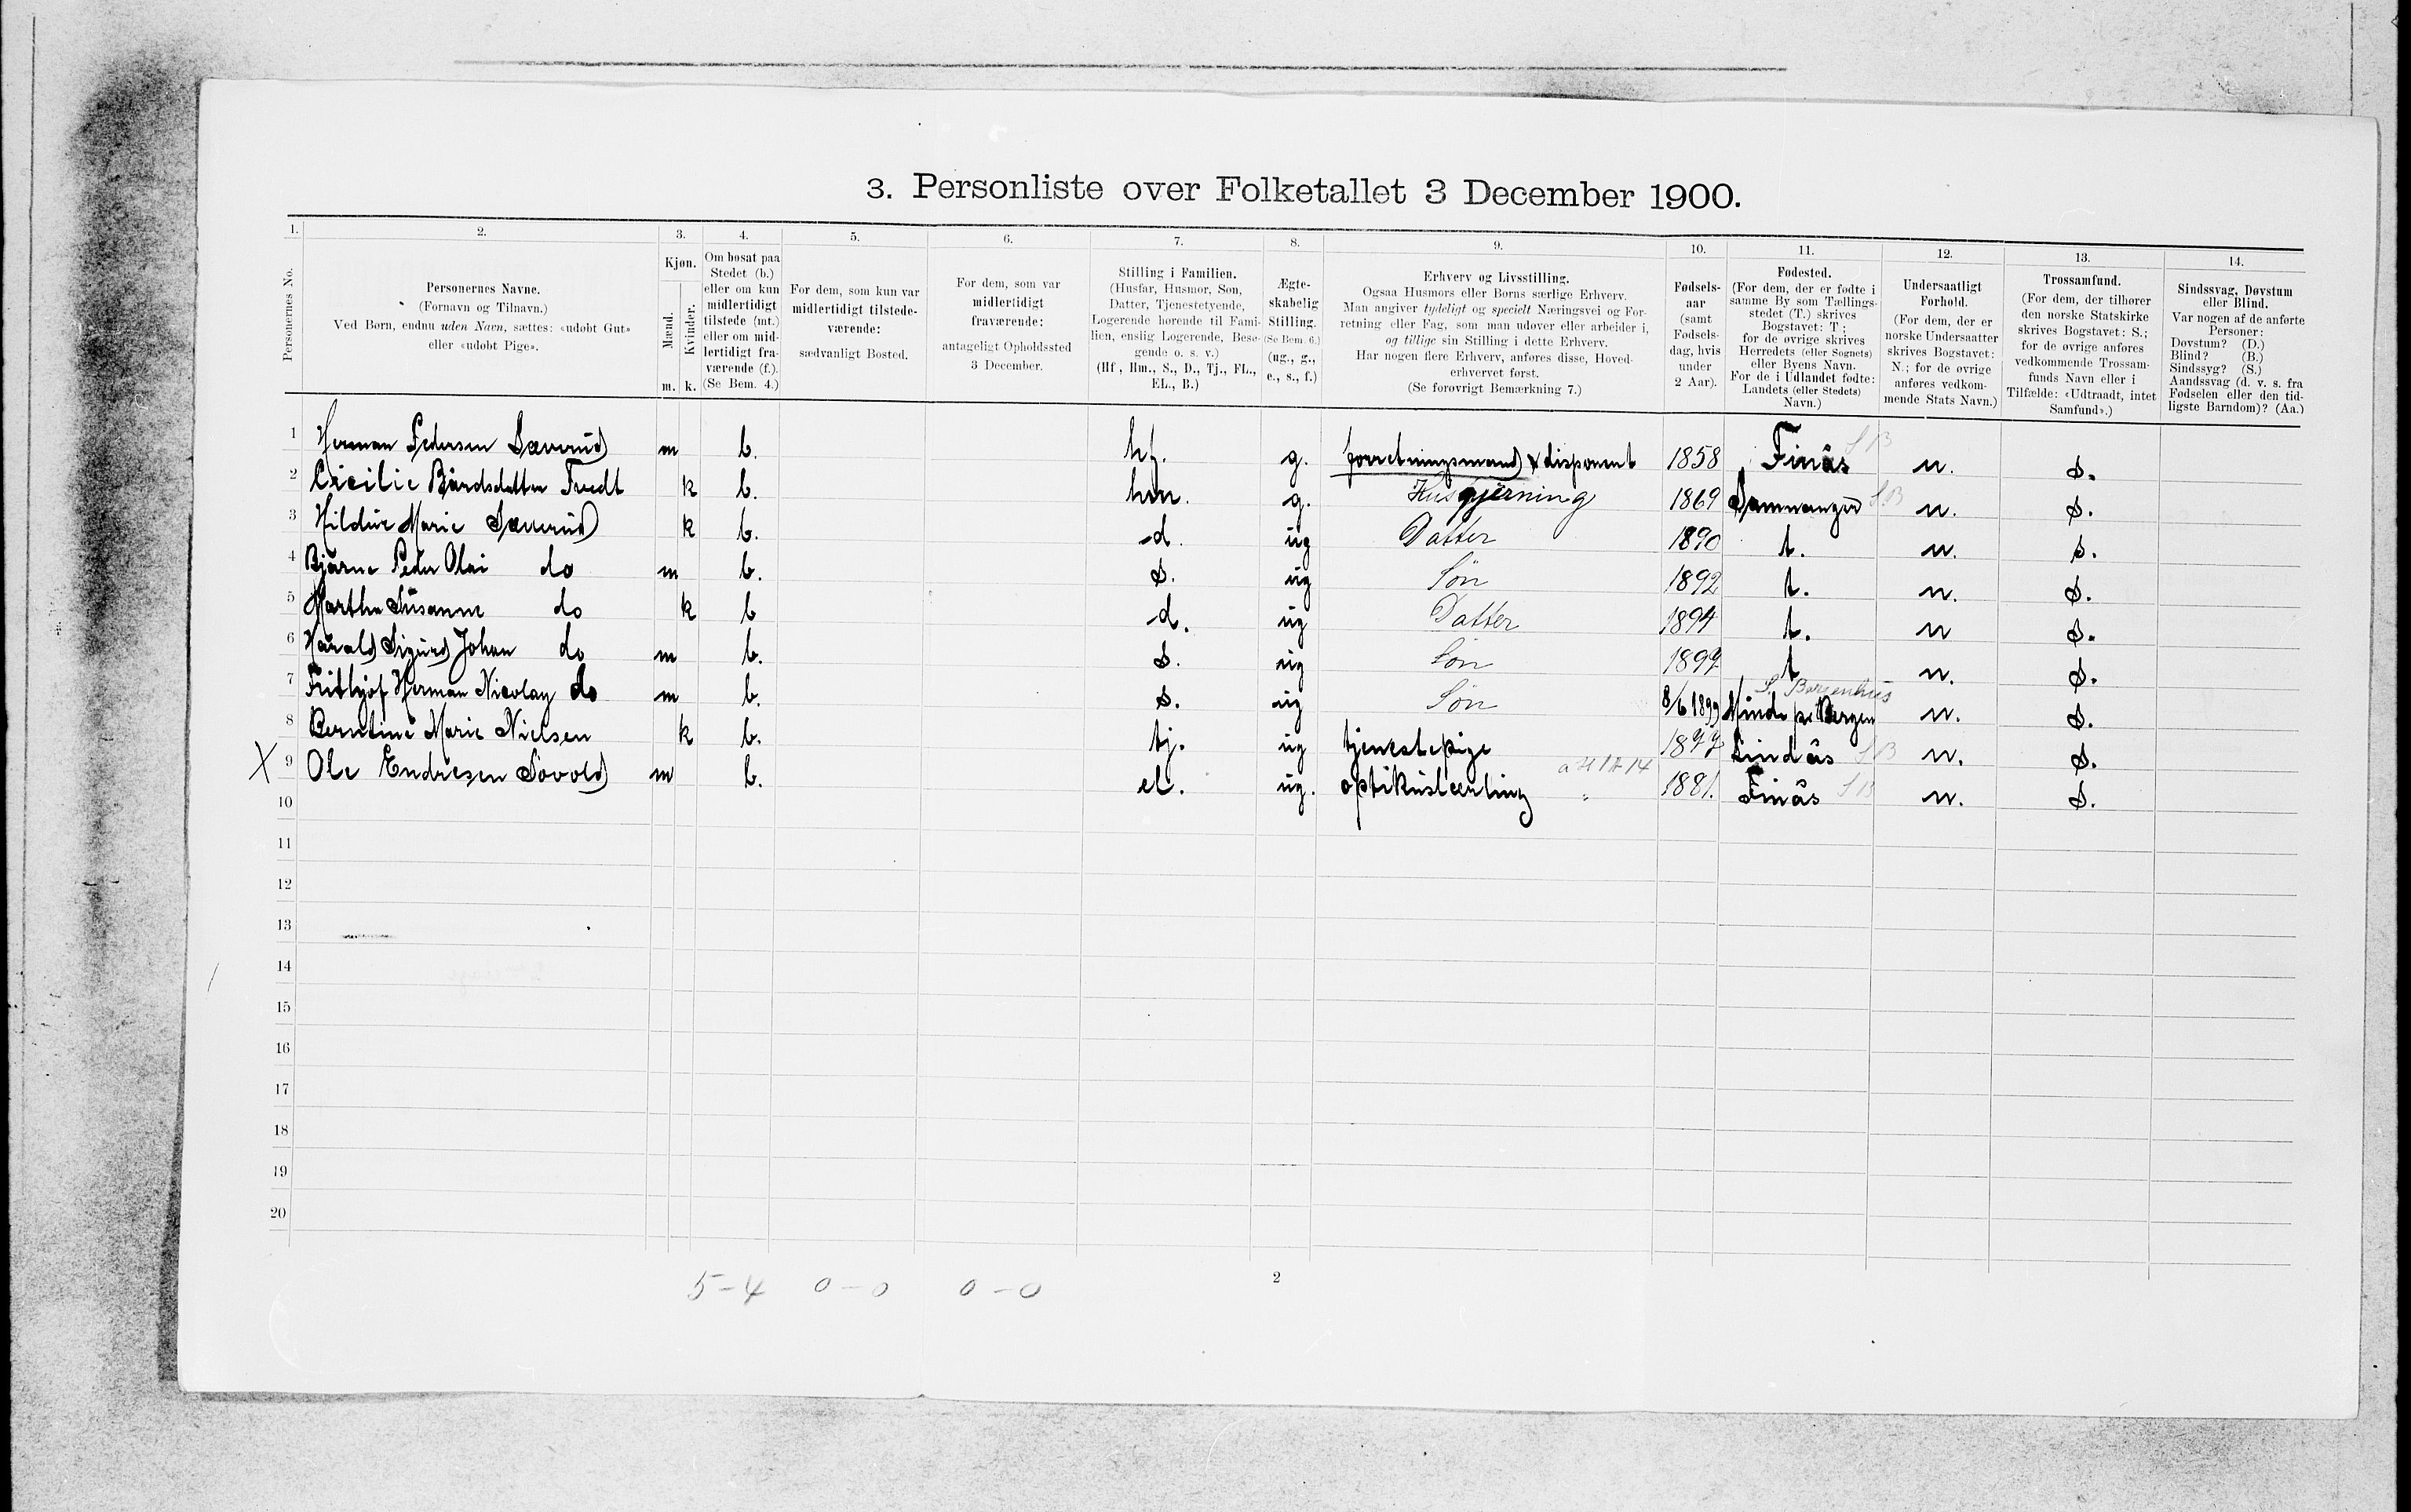 3. Personliste over Folketallet 3 December 1900.
1. 2. 3. 4. 5. 6. 7. 8. 9. 10. 11. 12. 13. 14.
Personernes No.
Personernes Navne.
(Fornavn og Tilnavn.)
Ved Børn, endnu uden Navn, sættes: «udøbt Gut»
eller «udøbt Pige».
Kjøn.
Mænd.
Kvinder.
m. k.
Om bosat paa
Stedet (b.)
eller om kun
midlertidigt
tilstede (mt.)
eller om mid-
lertidigt fra-
værende (f.).
(Se Bem. 4.)
For dem, som kun var
midlertidigt tilstede-
værende:
sædvanligt Bosted.
For dem, som var
midlertidigt
fraværende:
antageligt Opholdssted
3 December.
Stilling i Familien.
(Husfar, Husmor, Søn,
Datter, Tjenestetyende,
Logerende hørende til Fami-
lien, enslig Logerende, Besø-
gende o. s. v.)
(Hf., Hm., S., D., Tj., FL.,
EL., B.)
Ægte-
skabelig
Stilling.
(Se Bem. 6.)
(ug., g.,
e., s., f.)
Erhverv og Livsstilling.
Ogsaa Husmors eller Børns særlige Erhverv.
Man angiver tydeligt og specielt Næringsvei og For-
retning eller Fag, som man udøver eller arbeider i,
og tillige sin Stilling i dette Erhverv.
Har nogen flere Erhverv, anføres disse, Hoved-
erhvervet først.
(Se forøvrigt Bemærkning 7.)
Fødsels-
aar
(samt
Fødsels-
dag, hvis
under
2 Aar).
Fødested.
(For dem, der er fødte i
samme By som Tællings-
stedet (T.) skrives
Bogstavet: T;
for de øvrige skrives
Herredets (eller Sognets)
eller Byens Navn.
For de i Udlandet fødte:
Landets (eller Stedets)
Navn.)
Undersaatligt
Forhold.
(For dem, der er
norske Undersaatter
skrives Bogstavet:
N.; for de øvrige
anføres vedkom-
mende Stats Navn.)
Trossamfund.
(For dem, der tilhører
den norske Statskirke
skrives Bogstavet: S.;
for de øvrige anføres
vedkommende Trossam-
funds Navn eller i
Tilfælde: «Udtraadt, intet
Samfund».)
Sindssvag, Døvstum
eller Blind.
Var nogen af de anførte
Personer:
Døvstum? (D.)
Blind? (B.)
Sindssyg? (S.)
Aandssvag (d. v. s. fra
Fødselen eller den tid-
ligste Barndom)? (Aa.)
1 Herman Pedersen Sæverud m b. hf. g. forretningsmand & disponent 1858 Finås S B n. s.
2 Cecilie Bårdsdatter Tvedt k b. hm. g. Husgjerning 1869 Samnanger S B n. s.
3 Hildur Marie Sæverud k b. d. ug Datter 1890 t. n. s.
4 Bjarne Peder Olai do m b. s. ug Søn 1892 t. n. s.
5 Martha Susanne do k b d. ug Datter 1894 t. n s.
6 Harald Sigurd Johan do m b. s. ug Søn 1897 t n. s.
7 Frithjof Herman Nicolay do m b. s. ug Søn 8/6 1899 S. Bergenhus Minde pr Bergen n. s.
8 Berntine Marie Nielsen k b. tj. ug tjenestepige 1877 Lindås S B n. s.
X 9 Ole Endresen Sövold m b. el. ug. optikuslærling 1881. Finås S B n. s.
10
11
12
13
14
15
16
17
18
19
20
5-4 0-0 0-0
2